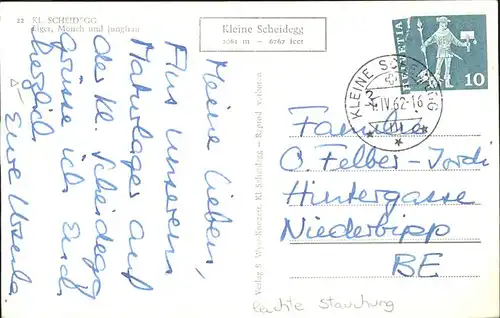 22 KL. SCHEIDEGG
Eiger, Mönch und Jungfrau
Kleine Scheidegg
2061 m - 6767 feet
Meine Lieben,
Aus unserem
Naturlager auf
der Kl. Scheidegg
grüsse ich Euch
herzlich
Eure Ursula
Kl. Scheidegg - Reprod. verboten
HELVETIA
10
KLEINE SCHEIDEGG
IV.62-16
Familie
O. Felber-Jordi
Hintergasse
Niederbipp
BE
leichte Stauchung